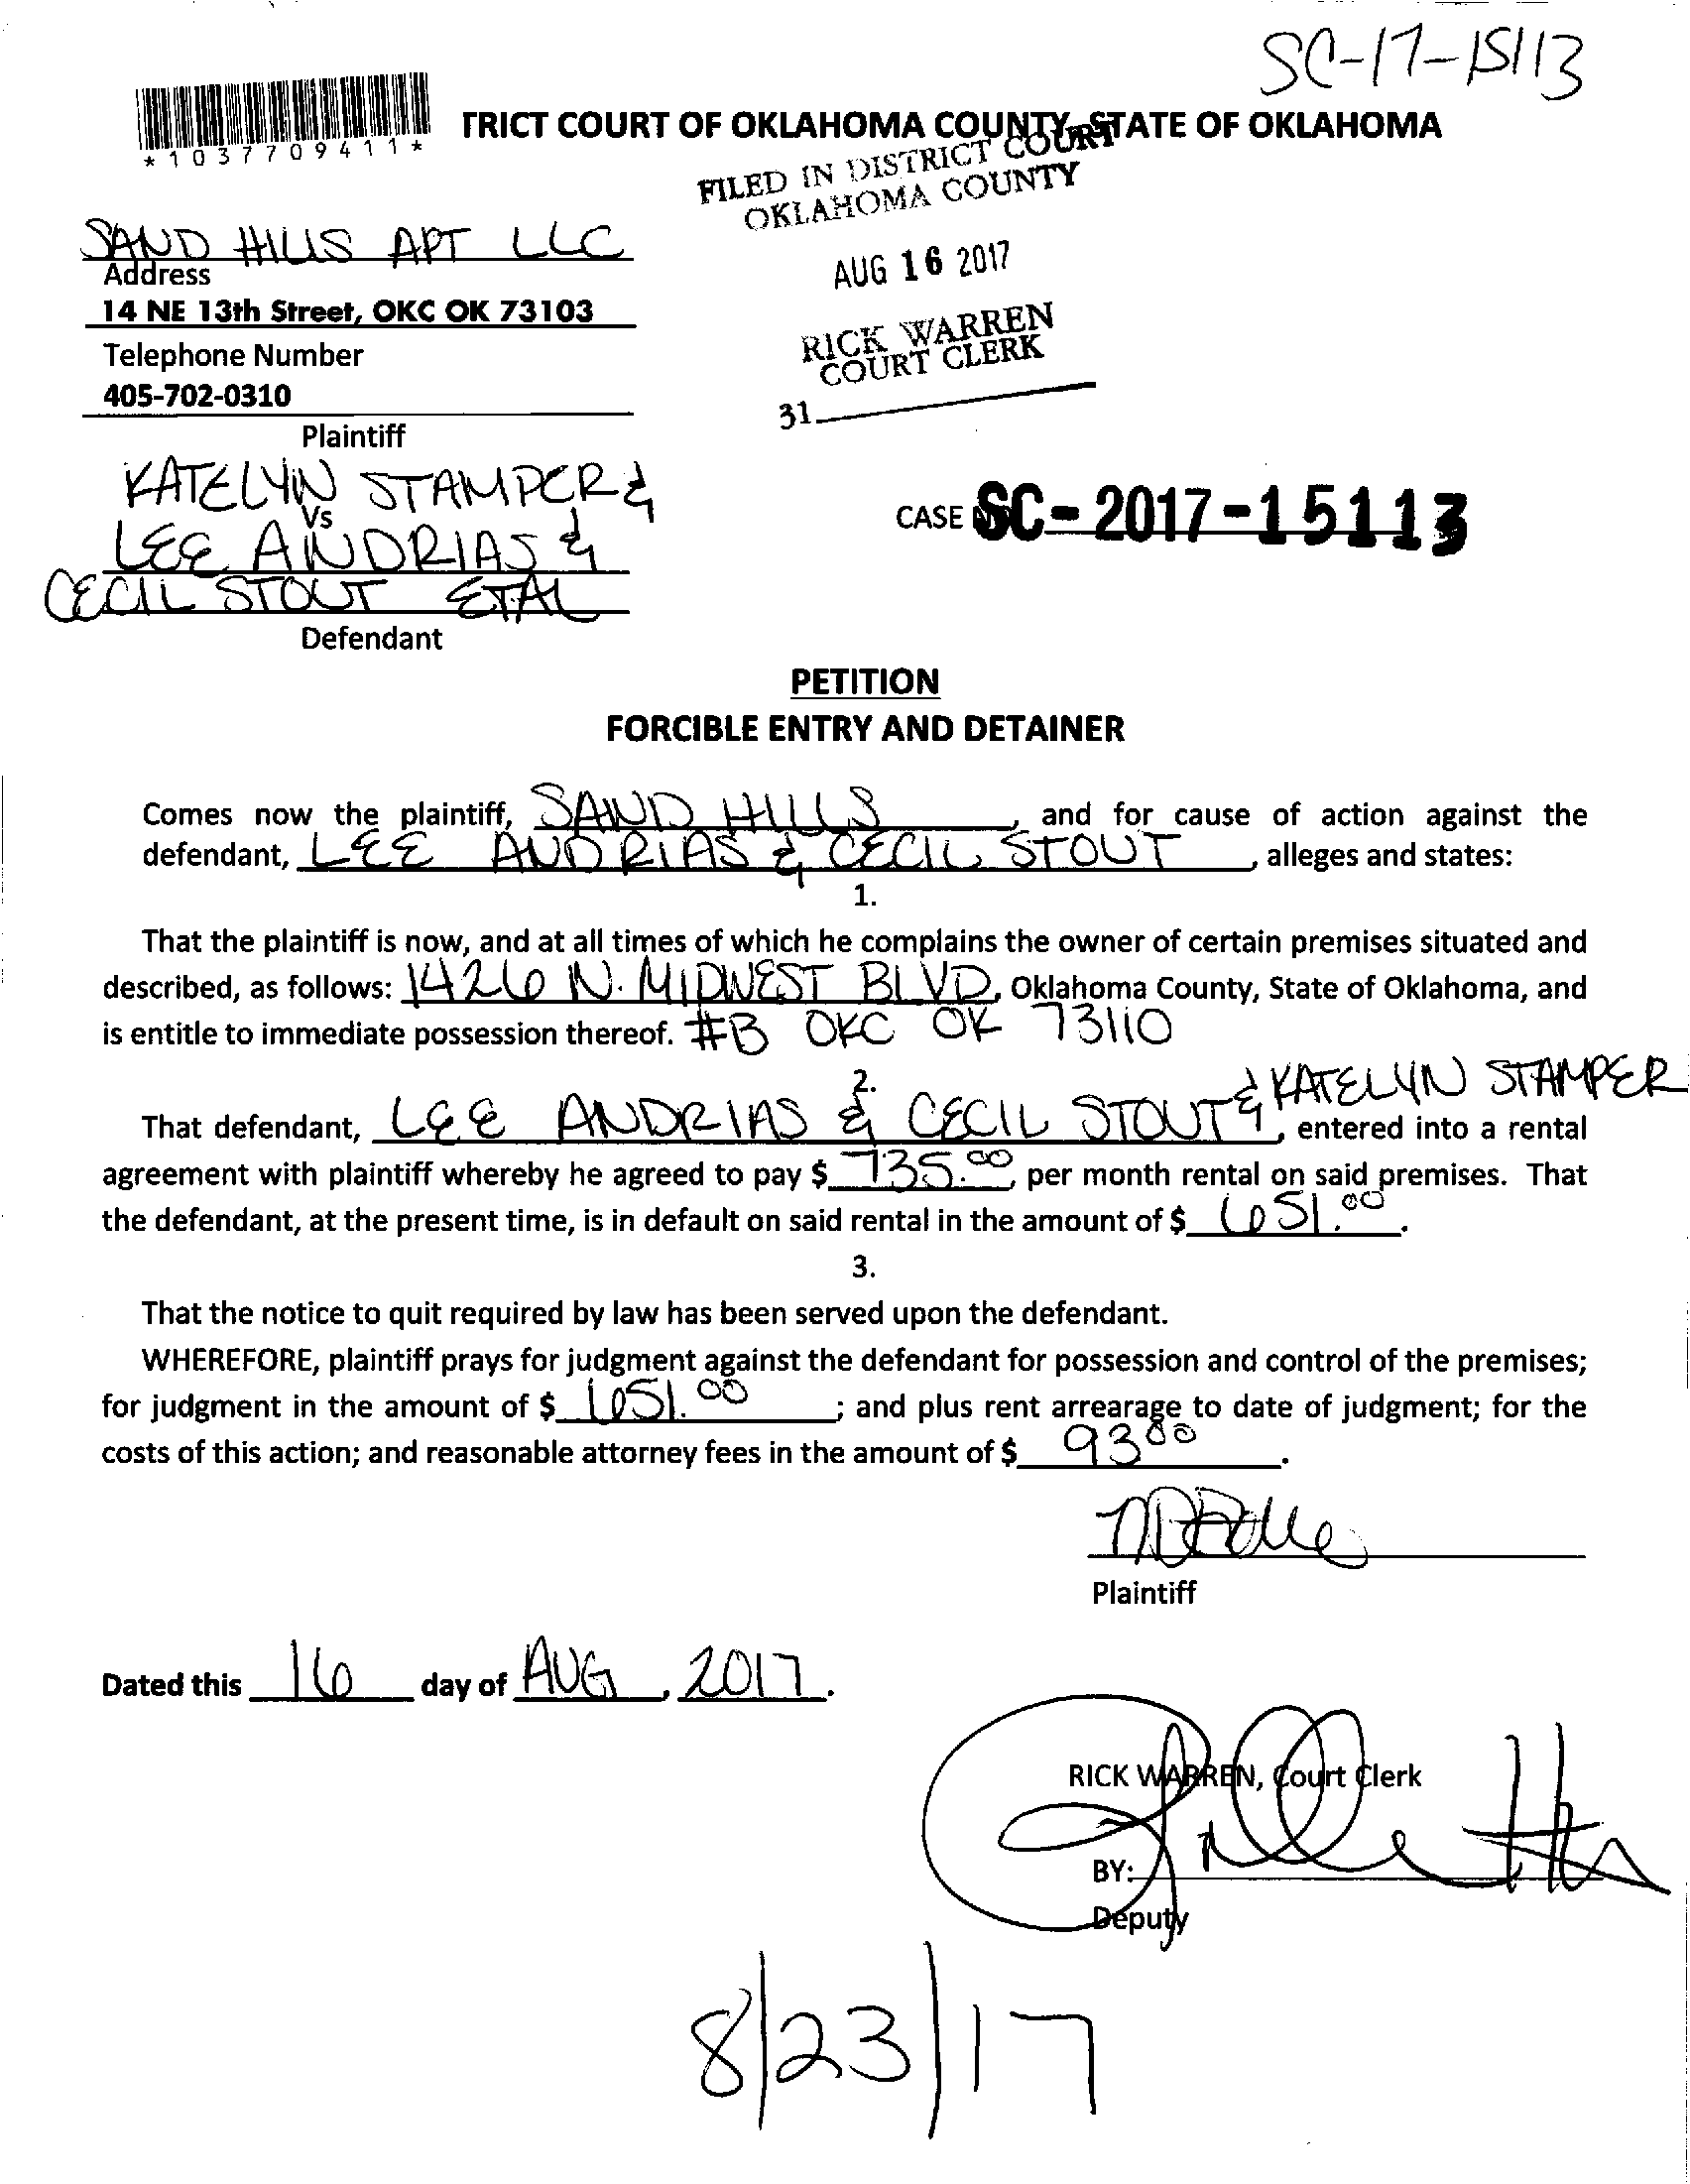 SC-17-15113
*1037709411*
TRICT COURT OF OKLAHOMA COUNTY, STATE OF OKLAHOMA
FILED IN DISTRICT COURT
OKLAHOMA COUNTY
AUG 16 2017
RICK WARREN
COURT CLERK
31
SAND HILLS APT LLC
Address
14 NE 13th Street, OKC OK 73103
Telephone Number
405-702-0310
Plaintiff
KATELYN STAMPER &
Vs
LEE ANDRIAS &
CECIL STOUT ETAL
Defendant
CASE NO SC-2017-15113
PETITION
FORCIBLE ENTRY AND DETAINER
Comes now the plaintiff, SAND HILLS, and for cause of action against the
defendant, LEE ANDRIAS & CECIL STOUT, alleges and states:
1.
That the plaintiff is now, and at all times of which he complains the owner of certain premises situated and
described, as follows: 1426 N. MIDWEST BLVD, Oklahoma County, State of Oklahoma, and
is entitle to immediate possession thereof. #B OKC OK 73110
2.
That defendant, LEE ANDRIAS & CECIL STOUT & KATELYN STAMPER, entered into a rental
agreement with plaintiff whereby he agreed to pay $ 735.00, per month rental on said premises. That
the defendant, at the present time, is in default on said rental in the amount of $ 651.00.
3.
That the notice to quit required by law has been served upon the defendant.
WHEREFORE, plaintiff prays for judgment against the defendant for possession and control of the premises;
for judgment in the amount of $ 651.00; and plus rent arrearage to date of judgment; for the
costs of this action; and reasonable attorney fees in the amount of $ 93.00.
Plaintiff
Dated this 16 day of AUG, 2017.
RICK WARREN, Court Clerk
BY:
Deputy
8/23/17